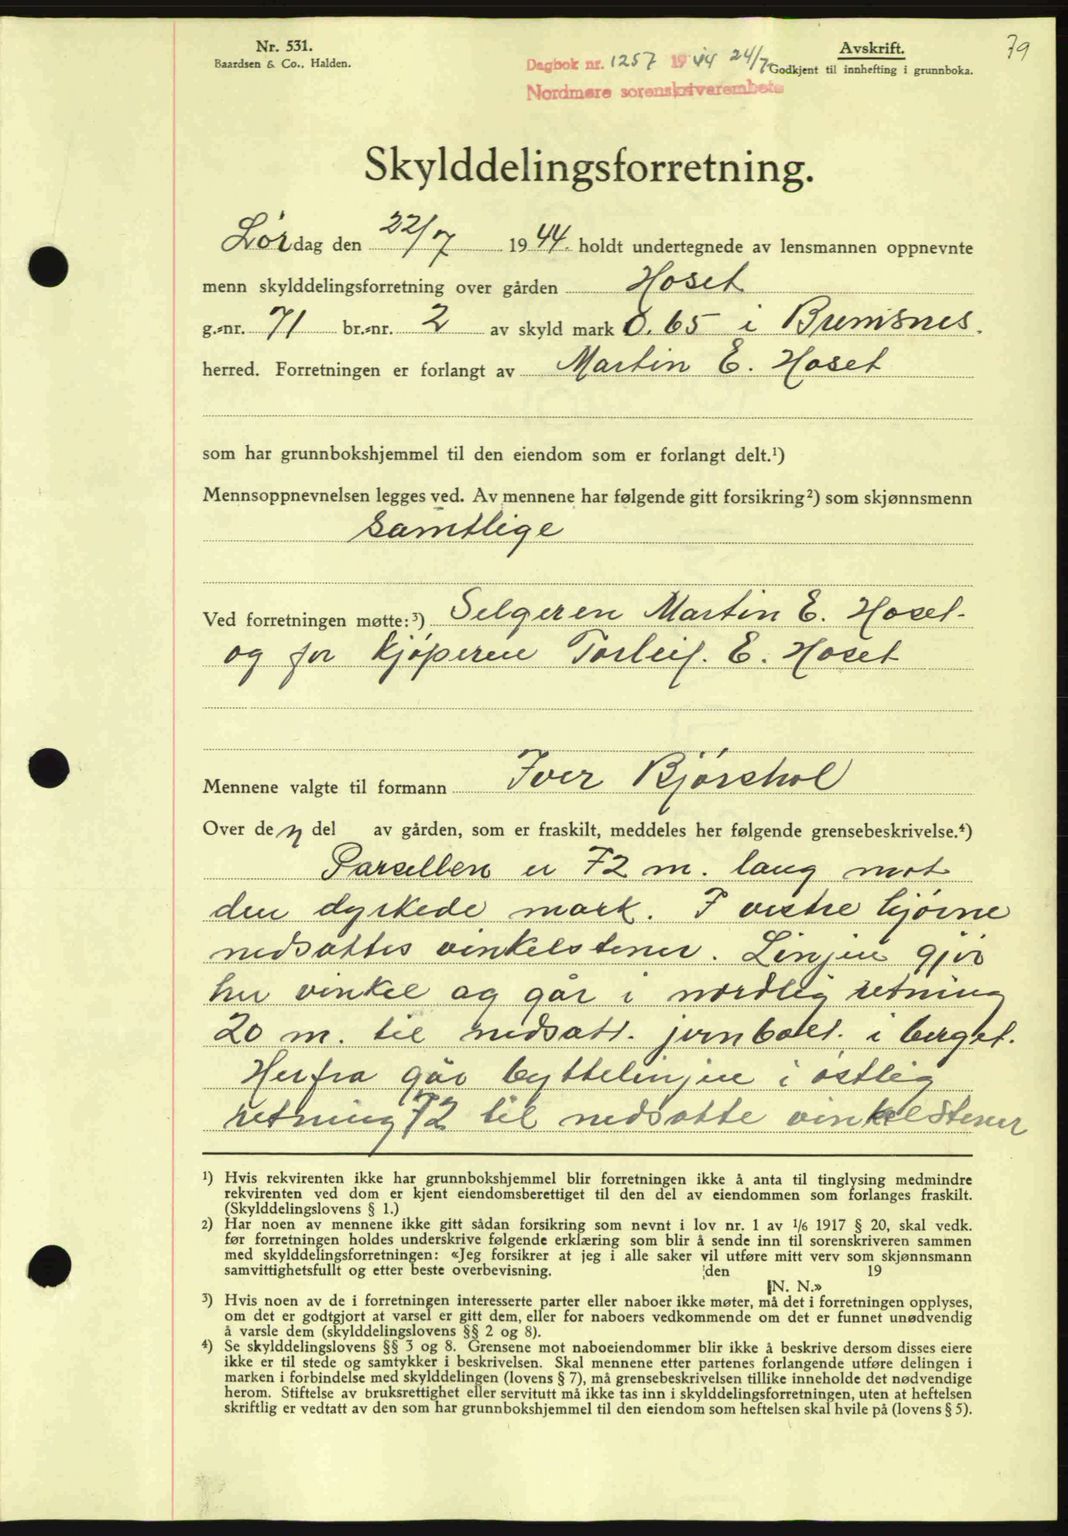 Nr. 531.
Baardsen & Co., Halden.
Dagbok nr. 1257 1944 24/7
Nordmøre sorenskriverembete
Avskrift.
Godkjent til innhefting i grunnboka.
79
Skylddelingsforretning.
Lørdag den 22/7 1944. holdt undertegnede av lensmannen oppnevnte
menn skylddelingsforretning over gården Hoset
g.-nr. 71 br.-nr. 2 av skyld mark 0.65 i Bremsnes.
herred. Forretningen er forlangt av Martin E. Hoset
som har grunnbokshjemmel til den eiendom som er forlangt delt.¹)
Mennsoppnevnelsen legges ved. Av mennene har følgende gitt forsikring²) som skjønnsmenn
samtlige
Ved forretningen møtte:³) Selgeren Martin E. Hoset
og for kjøperen Torleif. E. Hoset
Mennene valgte til formann Iver Bjørshol
Over den del av gården, som er fraskilt, meddeles her følgende grensebeskrivelse.⁴)
Parsellen er 72 m. lang mot
den dyrkede mark. I vestre hjørne
nedsattes vinkelstener. Linjen gjør
her vinkel og går i nordlig retning
20 m. til nedsatt. jernbolt. i berget.
Herfra går byttelinjen i østlig
retning 72 til nedsatte vinkelstener
¹) Hvis rekvirenten ikke har grunnbokshjemmel blir forretningen ikke å anta til tinglysing medmindre
rekvirenten ved dom er kjent eiendomsberettiget til den del av eiendommen som forlanges fraskilt.
(Skylddelingslovens § 1.)
²) Har noen av mennene ikke gitt sådan forsikring som nevnt i lov nr. 1 av 1/6 1917 § 20, skal vedk.
før forretningen holdes underskrive følgende erklæring som blir å sende inn til sorenskriveren sammen
med skylddelingsforretningen: «Jeg forsikrer at jeg i alle saker vil utføre mitt verv som skjønnsmann
samvittighetsfullt og etter beste overbevisning. den 19
N. N.»
³) Hvis noen av de i forretningen interesserte parter eller naboer ikke møter, må det i forretningen opplyses,
om det er godtgjort at varsel er gitt dem, eller for naboers vedkommende om det er funnet unødvendig
å varsle dem (skylddelingslovens §§ 2 og 8).
⁴) Se skylddelingslovens §§ 3 og 8. Grensene mot naboeiendommer blir ikke å beskrive dersom disses eiere
ikke er til stede og samtykker i beskrivelsen. Skal mennene etter partenes forlangende utføre delingen i
marken i forbindelse med skylddelingen (lovens § 7), må grensebeskrivelsen tillike inneholde det nødvendige
herom. Stiftelse av bruksrettighet eller servitutt må ikke tas inn i skylddelingsforretningen, uten at heftelsen
skriftlig er vedtatt av den som har grunnbokshjemmel til den eiendom som heftelsen skal hvile på (lovens § 5).